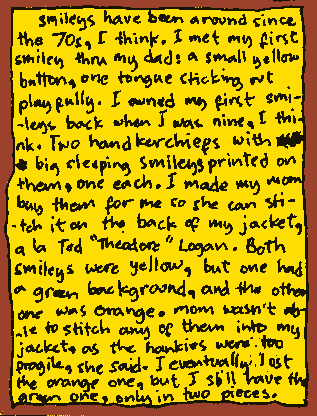 smileys have been around since
the 70s, I think. I met my first
smiley thru my dad: a small yellow
button, one tongue sticking out
playfully. I owned my first smi-
-leys back when I was nine, I thi-
nk. Two handkerchiefs with
big sleeping smileys printed on
them, one each. I made my mom
buy them for me so she can sti-
-tch it on the back of my jacket,
a la Ted "Theodore" Logan. Both
smileys were yellow, but one had
a green background, and the other
one was orange. mom wasn't ab-
-le to stitch any of them into my
jacket, as the hankies were too
fragile, she said. I eventually lost
the orange one, but I still have the
green one, only in two pieces.